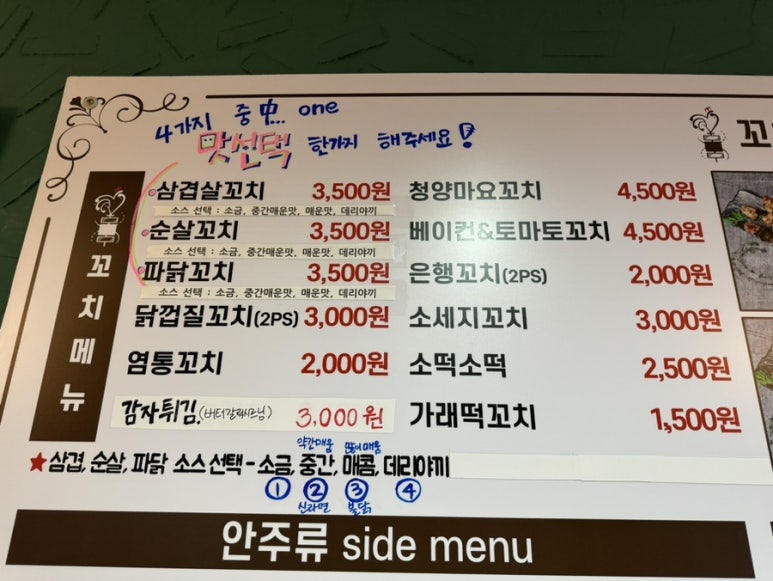 4가지 중中... one
맛선택 한가지 해주세요!
꼬
꼬치메뉴
삼겹살꼬치 3,500원
소스 선택 : 소금, 중간매운맛, 매운맛, 데리야끼
순살꼬치 3,500원
소스 선택 : 소금, 중간매운맛, 매운맛, 데리야끼
파닭꼬치 3,500원
소스 선택 : 소금, 중간매운맛, 매운맛, 데리야끼
닭껍질꼬치(2PS) 3,000원
염통꼬치 2,000원
감자튀김. 3,000원
청양마요꼬치 4,500원
베이컨&토마토꼬치 4,500원
은행꼬치(2PS) 2,000원
소세지꼬치 3,000원
소떡소떡 2,500원
가래떡꼬치 1,500원
약간매움 많이매움
★삼겹, 순살, 파닭 소스선택-소금, 중간, 매콤, 데리야끼
① ② ③ ④
신라면 불닭
안주류 side menu